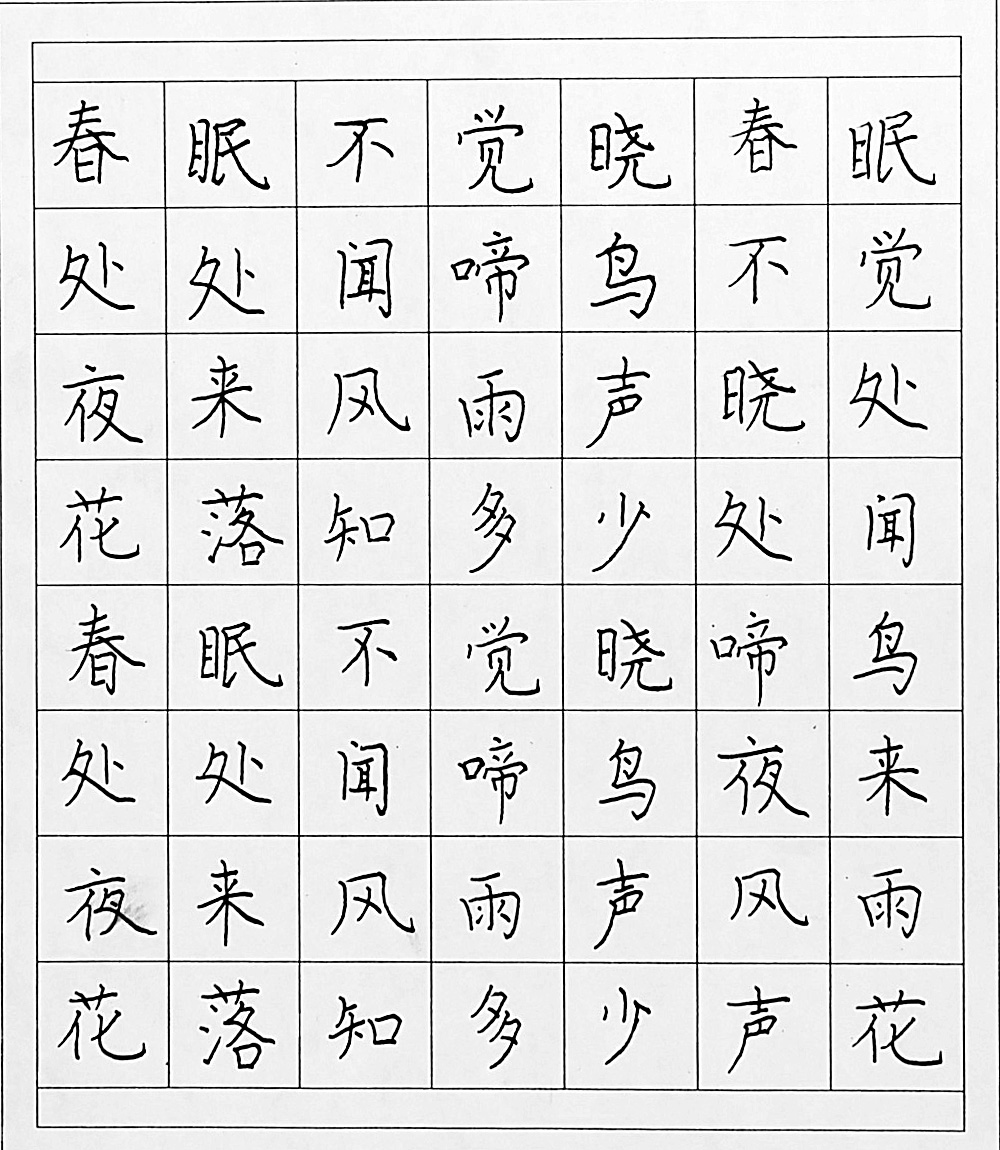 春眠不觉晓春眠
处处闻啼鸟不觉
夜来风雨声晓处
花落知多少处闻
春眠不觉晓啼鸟
处处闻啼鸟夜来
夜来风雨声风雨
花落知多少声花